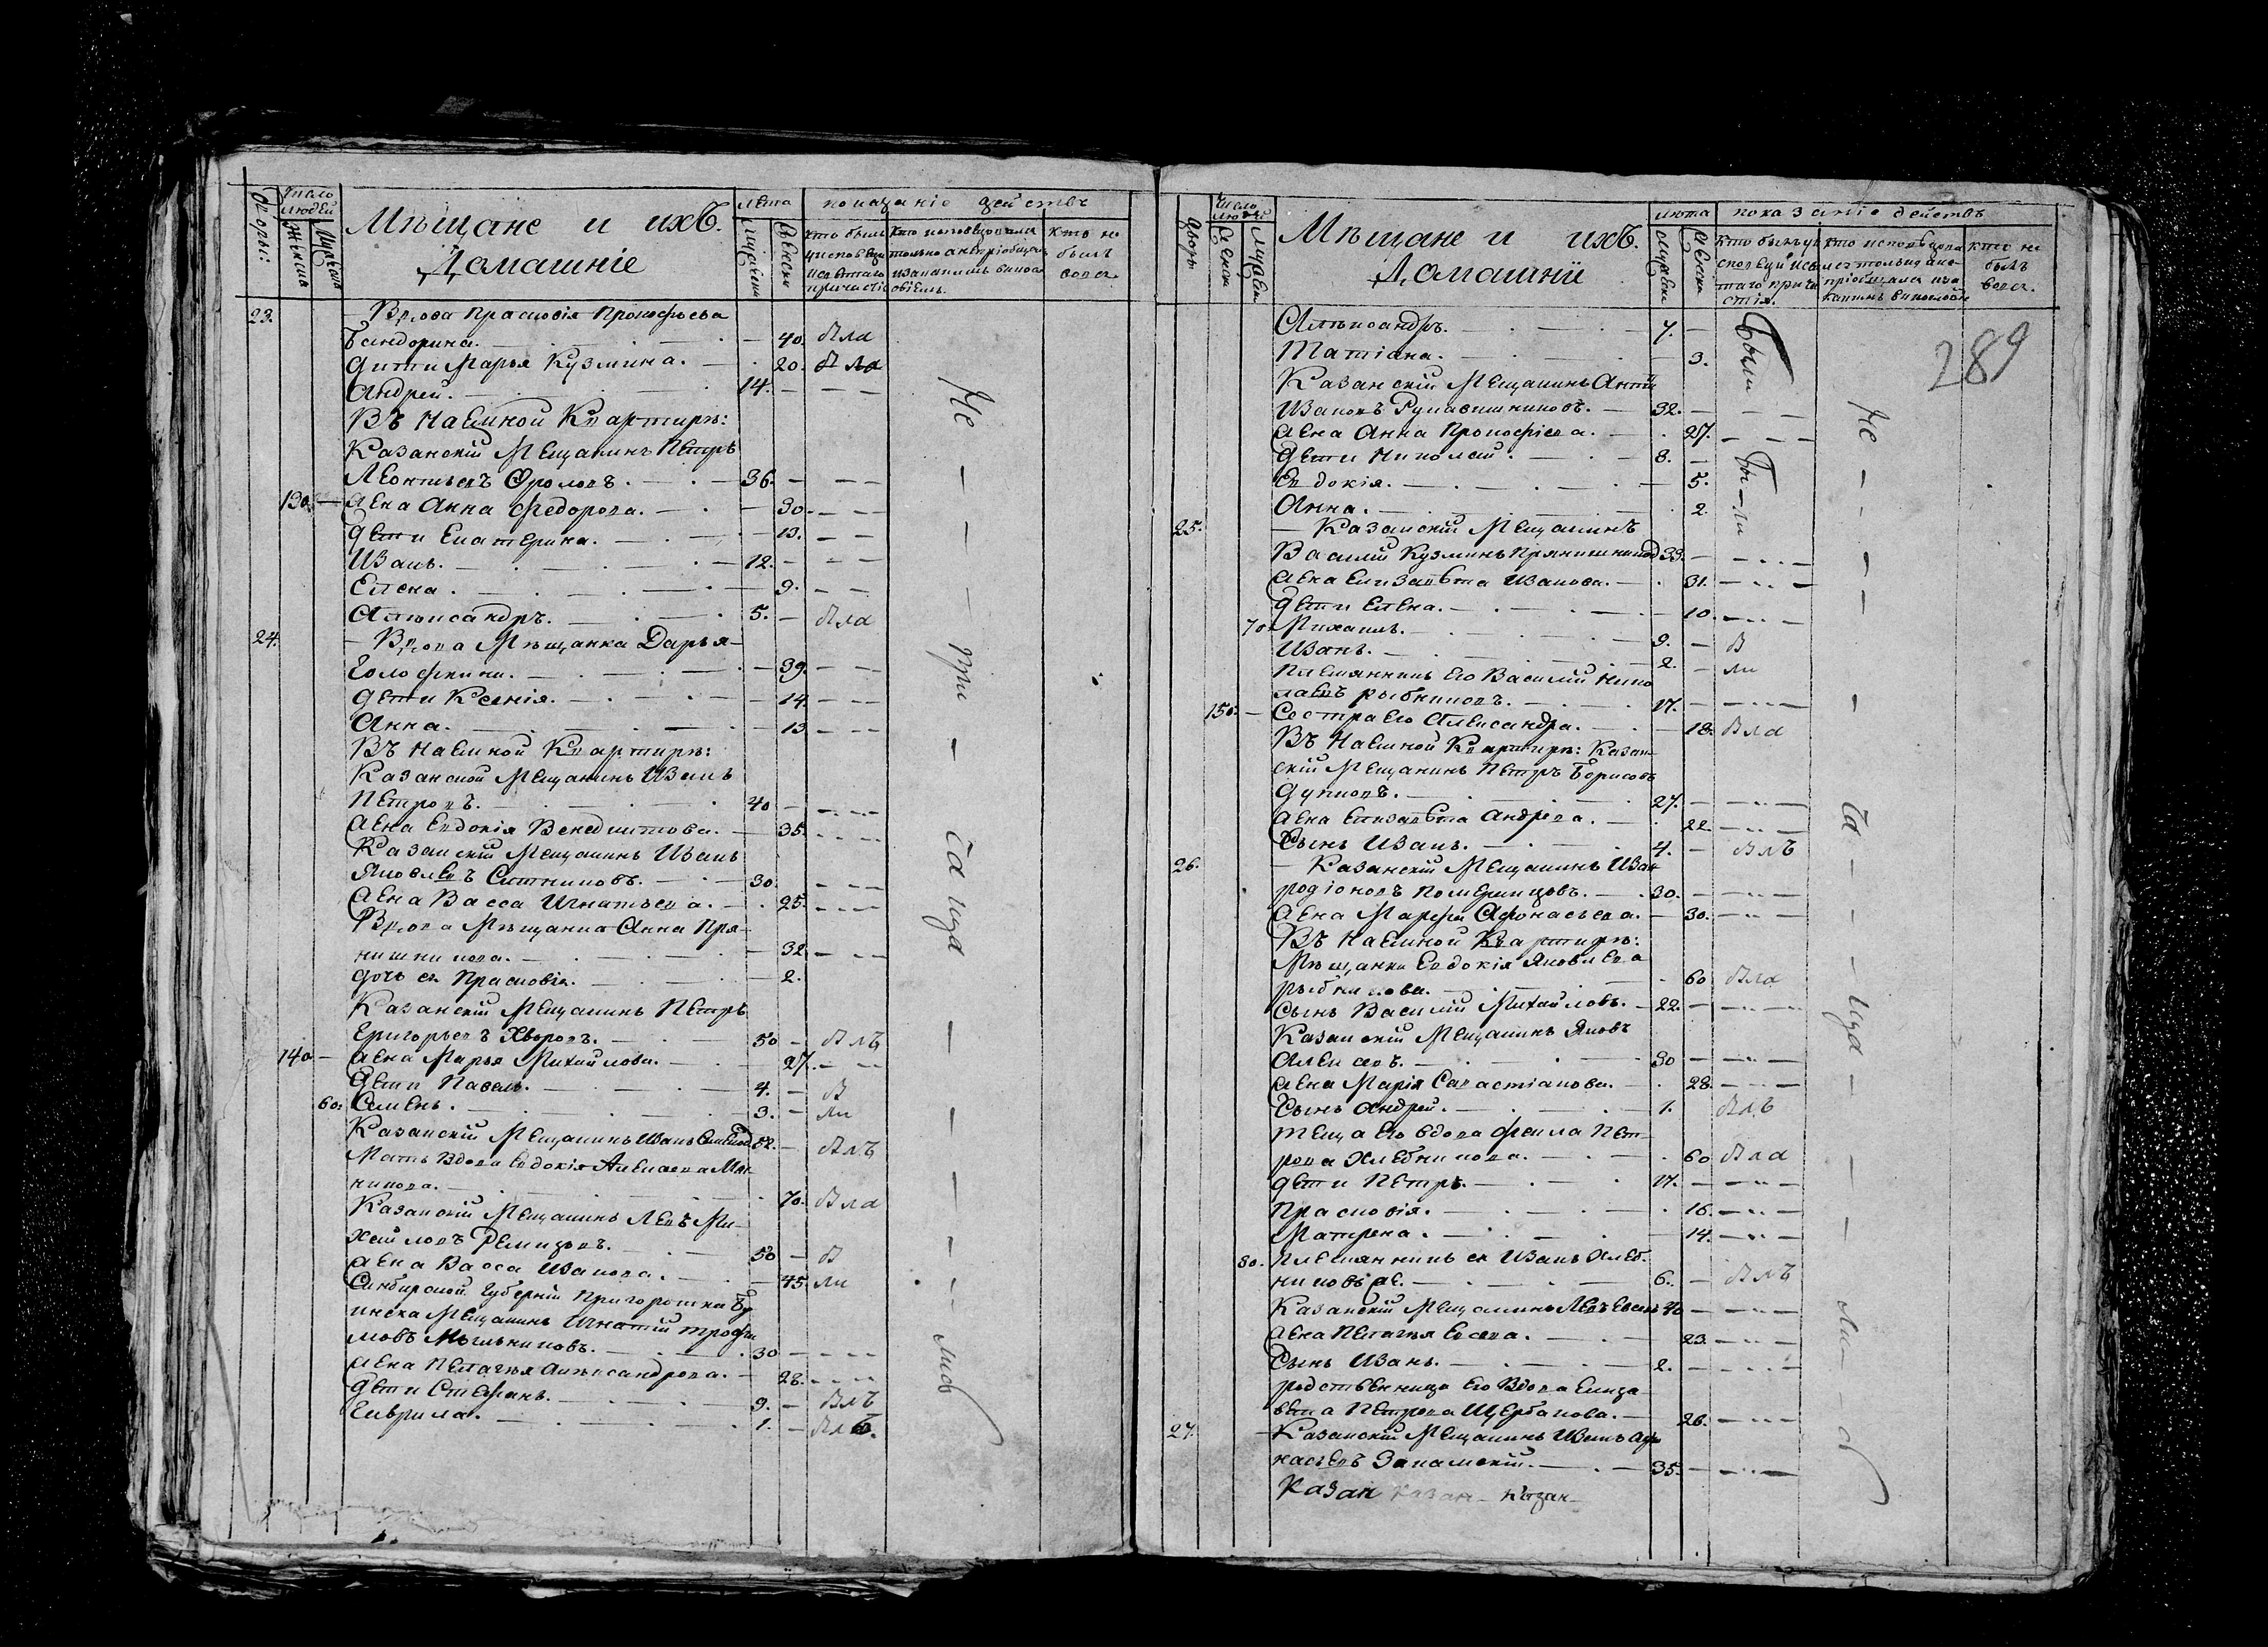 Дворы:
Число людей
Женска
Мужска
Мѣщане и ихъ
Домашніе
лѣта
мужески
женски
показаніе действъ
кто былъ у исповѣди и святаго причастія
кто исповѣдовался только а не пріобщался и за какимъ винословіемъ.
кто не былъ
23. — Вдова Прасковія Прокофьева
Бандорина. 40. была
дѣти Марья Кузмина. 20. была
Андрей. 14. — — —
Въ наемной Квартирѣ:
Казанскій Мещанинъ Петръ
Леонтьевъ Фроловъ. 36. — — —
130. — жена Анна Федорова. 30. — — —
дети Екатерина. 13. — —
Иванъ. 12. — — —
Елена. 9. — —
Александръ. 5. — была
24. — Вдова Мѣщанка Дарья
Голофкина. 39. — — —
дети Ксенія. 14. — — —
Анна. 13. — — —
Въ наемной Квартирѣ:
Казанской Мещанинъ Иванъ
Петровъ. 40 — — — —
жена Евдокія Венедиктова. 35. — — —
Казанскій Мещанинъ Иванъ
Яковлевъ Ситниковъ. 30. — — —
жена Васса Игнатьева. 25. — — —
Вдова Мѣщанка Анна Пря-
нишникова. 32. — — —
дочь ея Прасковія. 2.
Казанскій Мещанинъ Петръ
Григорьевъ Хворовъ. 50 — былъ
140 — жена Марья Михайлова. 27. — — —
дети Павелъ. 4. — бы
60. Семенъ. 3. — ли
Казанскій Мещанинъ Иванъ Семенов 52. — былъ
Мать вдова Евдокія Алексеева Мя-
никова. 70. была
Казанскій Мещанинъ Левъ Ми-
хайловъ Ремизовъ. 50 — бы
жена Васса Иванова. 45. ли
Синбирской Губерніи Пригоротка Бу-
инска Мещанинъ Игнатій Трофи-
мовъ Мыльниковъ. 30 — — — —
жена Пелагея Александрова. 28. — — — —
дети Стефанъ. 9. — былъ
Гаврила. 1. — былъ.
Не — — — при — ча ща — — — — — лись
Дворы
Число людей
Женски
Мужеск
Мѣщане и ихъ
Домашніи
лѣта
мужески
женски
показаніе действъ
кто былъ у исповеди и святаго причастія.
кто исповедовался
кто не былъ
289
Александръ. 7. — Были
Татіана. 3.
Казанскій Мещанинъ
Ивановъ Рукавишниковъ. 32. — — —
жена Анна Прокофіева. 27. — — —
дети Николай. 8. — Бы-
Евдокія. 5.
Анна. 2. ли
25. — Казанскій Мещанинъ
Василій Кузминъ Прянишников 33. — — — —
жена Елизавета Иванова. 31. — — —
дети Елена. 10. — — —
70. Михаилъ. 9. — бы
Иванъ. 2. — ли
Племянникъ его Василій Нико-
лаевъ рыбниковъ. 17. — — — —
150. — Сестра его Александра. 18. была
Въ наемной Квартирѣ: Казан-
скій Мещанинъ Петръ Борисовъ
27. — — — —
жена Елизавета Андреева. 22. — — —
Сынъ Иванъ. 4. — былъ
26. — Казанскій Мещанинъ Иван
родіоновъ Померанцовъ. 30. — — — —
жена Марфа Афонасьева. 30. — — —
Въ наемной Квартирѣ:
Мѣщанка Евдокія Яковлева
рыбникова. 60 была
Сынъ Василій Михайловъ. 22. — — — —
Казанскій Мещанинъ Яковъ
Алексеевъ. 30 — — — —
жена Марія Савастіанова. 28. — — —
Сынъ Андрей. 1. былъ
Теща его вдова Фекла Пет-
рова Хлебникова. 60 была
дети Петръ. 17. — — — —
Прасковія. 16. — — —
Матрена. 14. — — —
80. Племянникъ ея Иванъ Хлеб-
никовъ же. 6. — былъ
Казанскій Мещанинъ Левъ 40 — — — —
жена Пелагея 23. — — —
Сынъ Иванъ. 2. — — — —
родственница его Вдова Елиза-
вета Петрова Щербакова. 26. — — —
27. — Казанскій Мещанинъ Иванъ Афо-
насьевъ Закамскій. 35. — — — —
Казан Казан — Казан —
Не — — — — — ча — — ща — — — ли — сь